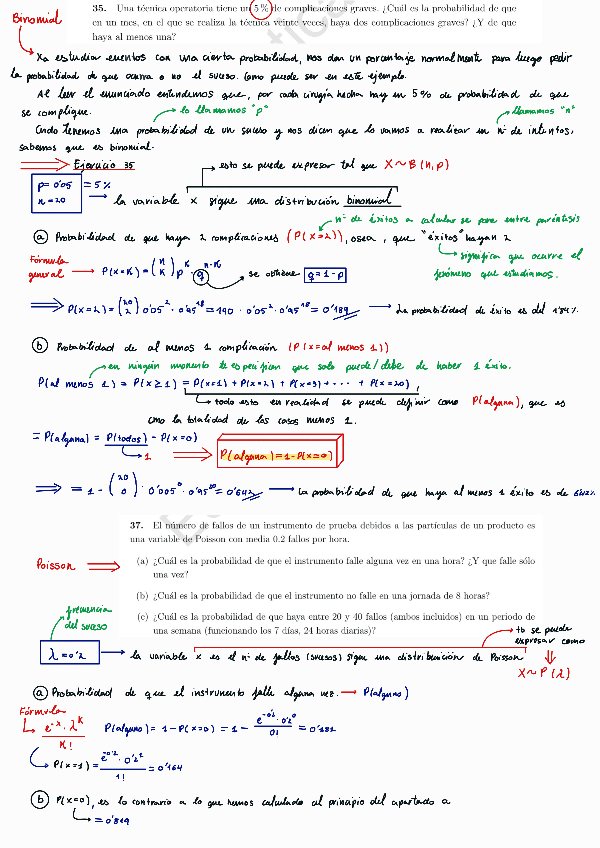 Binomial
35. Una técnica operatoria tiene un 5 % de complicaciones graves. ¿Cuál es la probabilidad de que
en un mes, en el que se realiza la técnica veinte veces, haya dos complicaciones graves? ¿Y de que
haya al menos una?
Xa estudiar eventos con una cierta probabilidad, nos dan un porcentaje normalmente para luego pedir
la probabilidad de que ocurra o no el suceso. Como puede ser en este ejemplo.
Al leer el enunciado entendemos que, por cada cirugía hecha hay un 5% de probabilidad de que
se complique.
lo llamamos "p"
llamamos "n"
Cndo tenemos una probabilidad de un suceso y nos dicen que lo vamos a realizar un nº de intentos,
sabemos que es binomial.
Ejercicio 35
esto se puede expresar tal que X~B(n,p)
p=0'05 = 5%
n=20
la variable x sigue una distribución binomial
nº de éxitos a calcular se pone entre paréntesis
a Probabilidad de que haya 2 complicaciones (P(X=2)), osea, que "éxitos" hayan 2
significa que ocurre el
fenómeno que estudiamos.
Fórmula
general
P(X=K) = (n K) p^K · q^n-K
se obtiene q=1-p
P(X=2) = (20 2) 0'05^2 · 0'95^18 = 190 · 0'05^2 · 0'95^18 = 0'189
La probabilidad de éxito es del 18'9%.
b Probabilidad de al menos 1 complicación (P(X=al menos 1))
en ningún momento te especifican que solo puede/debe de haber 1 éxito.
P(al menos 1) = P(X≥1) = P(X=1) + P(X=2) + P(X=3) + ... + P(X=20)
todo esto en realidad se puede definir como P(alguna), que es
cmo la totalidad de los casos menos 1.
= P(alguna) = P(todos) - P(X=0)
1
P(alguna) = 1-P(X=0)
= 1 - (20 0) · 0'005^0 · 0'95^20 = 0'642
La probabilidad de que haya al menos 1 éxito es de 64'2%
37. El número de fallos de un instrumento de prueba debidos a las partículas de un producto es
una variable de Poisson con media 0.2 fallos por hora.
Poisson
(a) ¿Cuál es la probabilidad de que el instrumento falle alguna vez en una hora? ¿Y que falle sólo
una vez?
(b) ¿Cuál es la probabilidad de que el instrumento no falle en una jornada de 8 horas?
(c) ¿Cuál es la probabilidad de que haya entre 20 y 40 fallos (ambos incluidos) en un periodo de
una semana (funcionando los 7 días, 24 horas diarias)?
frecuencia
del suceso
tb se puede
expresar como
λ=0'2
la variable x es el nº de fallos (sucesos) sigue una distribución de Poisson
X~P(λ)
a Probabilidad de que el instrumento falle alguna vez. P(alguno)
Fórmula
e^-λ · λ^K / K!
P(alguno) = 1-P(X=0) = 1 - e^-0'2 · 0'2^0 / 0! = 0'181
P(X=1) = e^-0'2 · 0'2^1 / 1! = 0'164
b P(X=0), es lo contrario a lo que hemos calculado al principio del apartado a
= 0'819